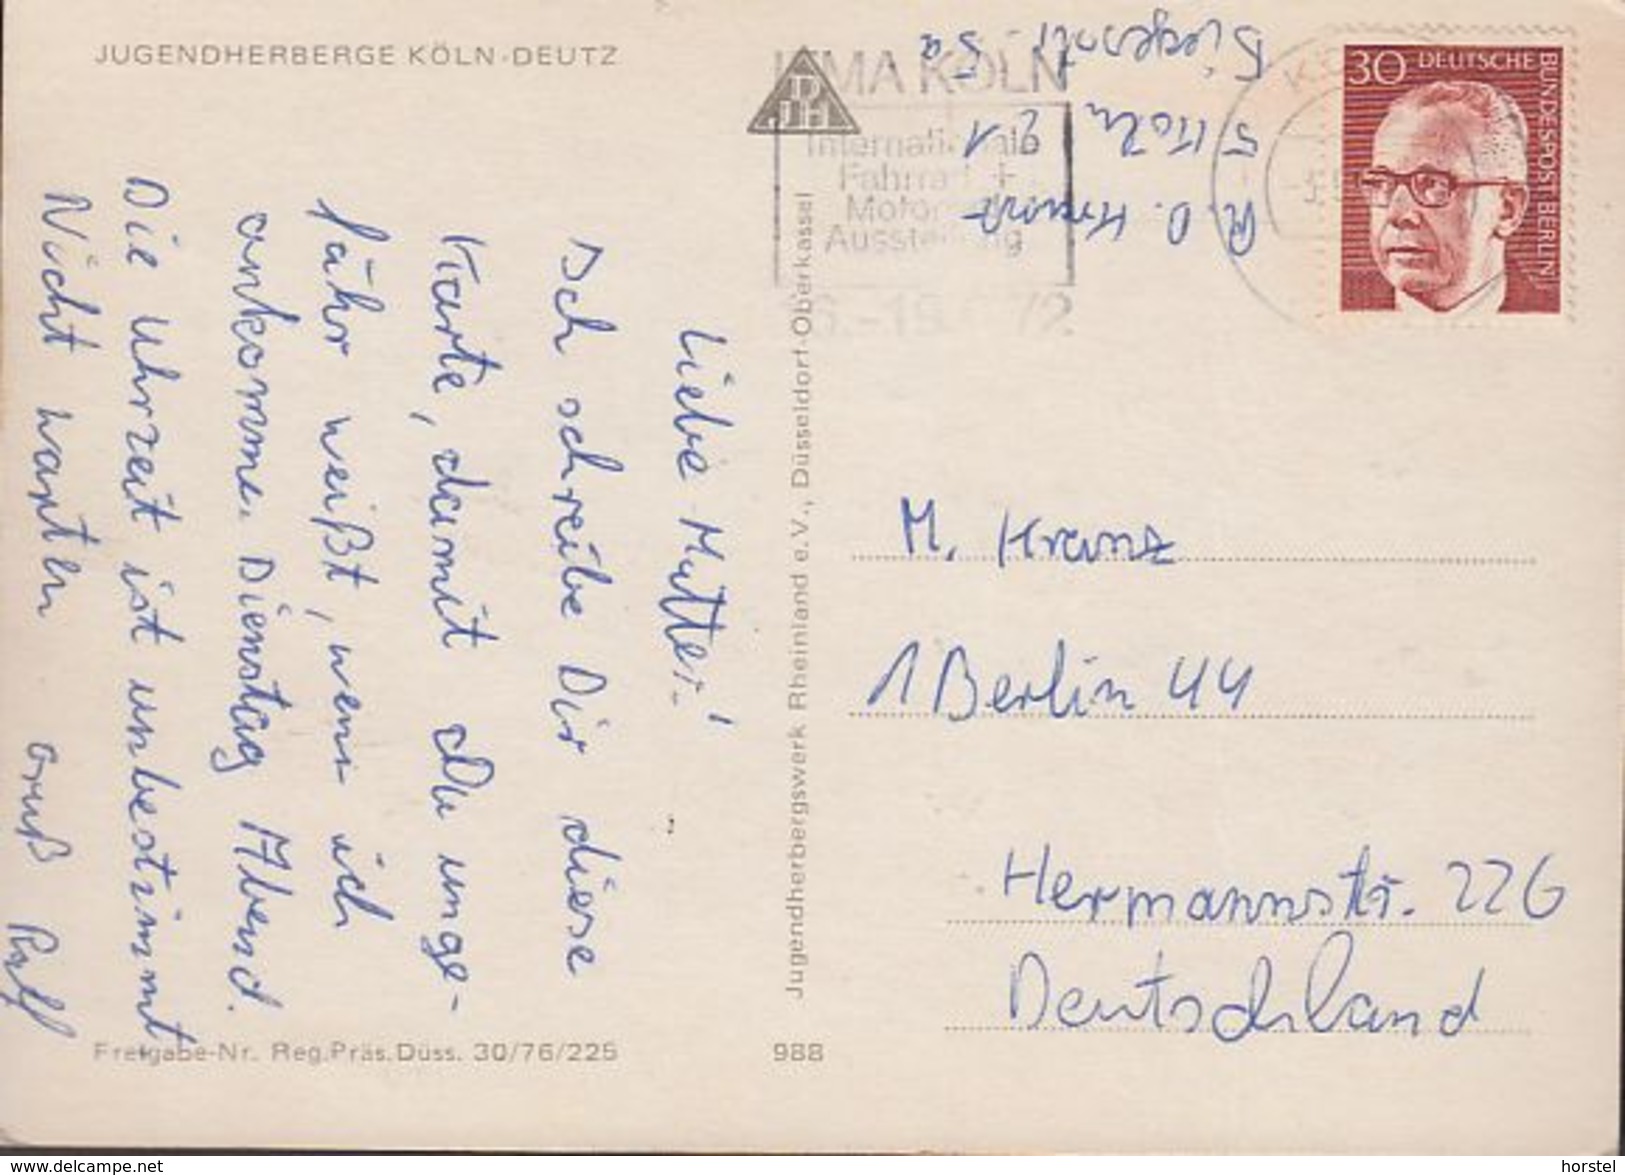 JUGENDHERBERGE KÖLN-DEUTZ
DJH
IFMA KÖLN
Internationale
Fahrrad +
Motorrad
Ausstellung
72
30 DEUTSCHE
BUNDESPOST BERLIN
5 Köln 21
Liebe Mutter!
Ich schreibe Dir diese
Karte, damit Du unge-
fähr weißt, wenn ich
ankomme. Dienstag Abend.
Die Uhrzeit ist unbestimmt
Nicht warten Gruß Ralf
Jugendherbergswerk Rheinland e.V., Düsseldorf-Oberkassel
M. Kranz
1 Berlin 44
Hermannstr. 226
Deutschland
Freigabe-Nr. Reg.Präs.Düss. 30/76/225
988
www.delcampe.net
horstel